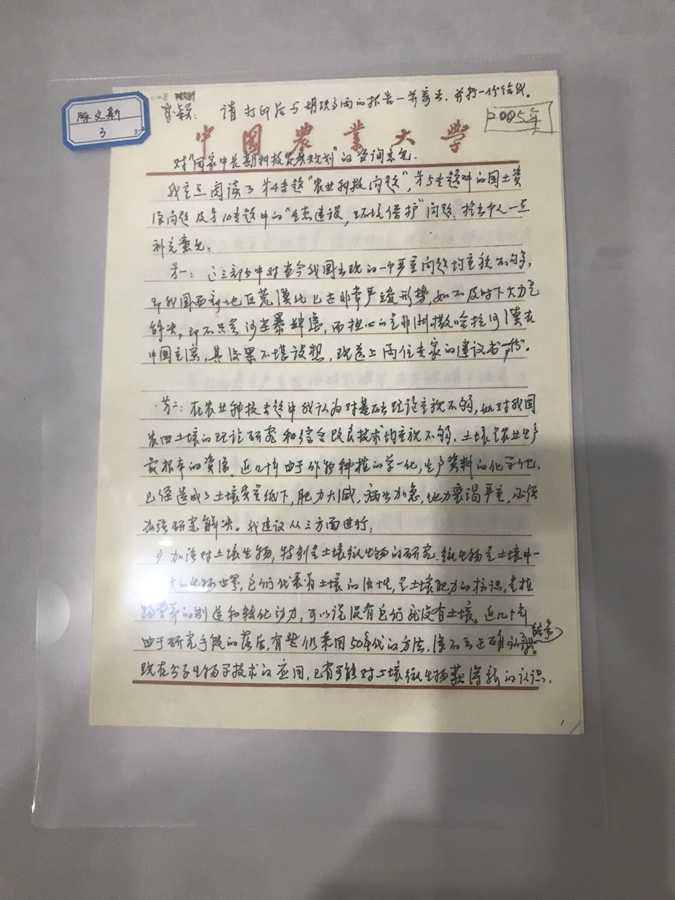 陈文新
3
请打印后与胡 方面的报告一并寄去，并打一份给我。
2005年
中国农业大学
对"国家中长期科技发展规划"的咨询意见
我重点阅读了第4专题"农业科技问题"，第5专题中的国土资
源问题及第10专题中的"生态建设，环境保护"问题，提出个人一点
补充意见。
第一：这三部分中对当今我国出现的一个严重问题均重视不够，
即我国西部地区荒漠化已在非常严峻形势，如不及时下大力气
解决，即不只会沙尘暴肆虐，而担心的是非洲撒哈拉沙漠在
中国重演，其后果不堪设想，现送上两位专家的建议书一份。
第二：在农业科技专题中我认为对基础理论重视不够，如对我国
农田土壤的理论研究和综合改良技术均重视不够，土壤是农业生产
最根本的资源，近几十年由于作物种植的单一化，生产资料的化学化，
已经造成了土壤质量低下，肥力大减，病虫加急，地力衰竭严重，必须
加强研究解决。我建议从三方面进行：
1）加强对土壤生物，特别是土壤微生物的研究，微生物是土壤中一
生物世界，它们代表着土壤的活性，是土壤肥力的标识，是植
物营养的制造和转化动力，可以说没有它们就没有土壤。近几十年
由于研究手段的落后，有些仍采用50年代的方法，得不出正确的结果，
现在分子生物学技术的应用，已有可能对土壤微生物获得新的认识。
1